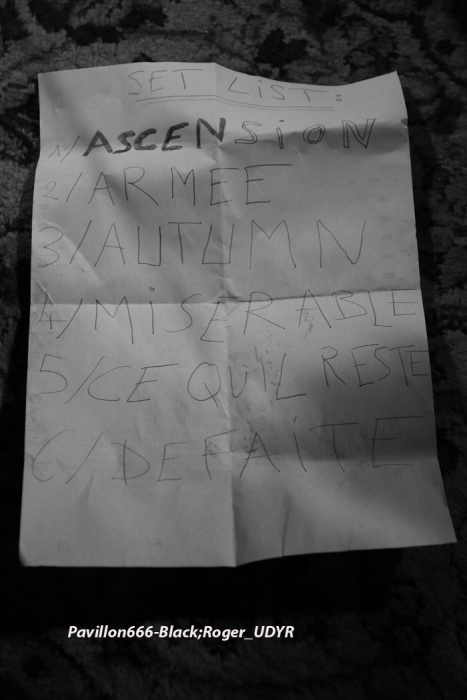 SET LIST:
1/ ASCENSiON
2/ ARMEE
3/ AUTUMN
4/ MiSERABLE
5/ CE QU'iL RESTE
6/ DEFAiTE
Pavillon666-Black;Roger_UDYR